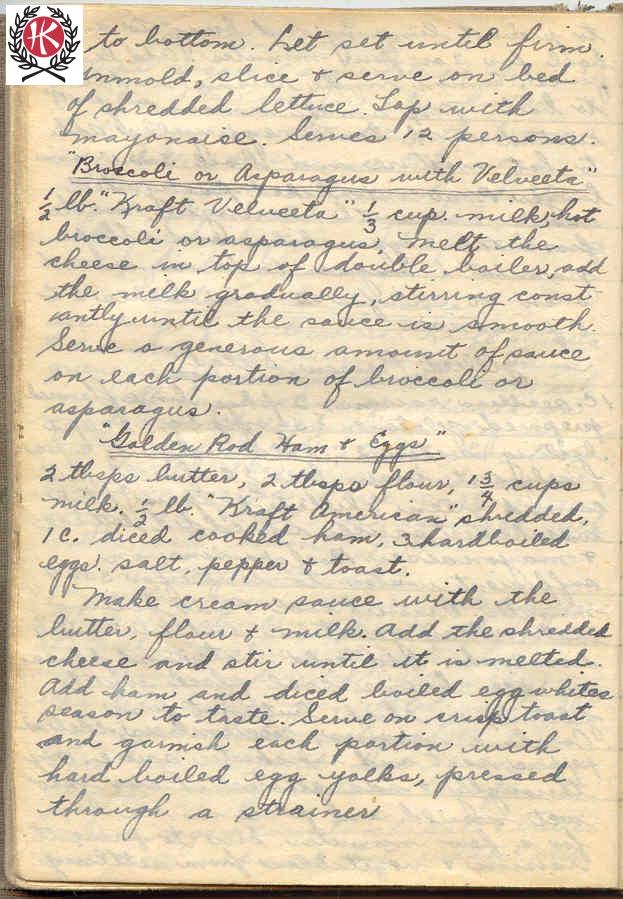 HK
to bottom. Let set until firm.
Unmold, slice & serve on bed
of shredded lettuce. Top with
mayonaise. Serves 12 persons.
"Broccoli or Asparagus with Velveeta"
1/2 lb. "Kraft Velveeta" 1/3 cup. milk, hot
broccoli or asparagus. Melt the
cheese in top of double boiler, add
the milk gradually, stirring const
antly until the sauce is smooth.
Serve a generous amount of sauce
on each portion of broccoli or
asparagus.
"Golden Rod Ham & Eggs"
2 tbsps butter, 2 tbsps flour, 1 3/4 cups
milk. 1/2 lb. "Kraft American" shredded,
1 c. diced cooked ham, 3 hardboiled
eggs. salt, pepper & toast.
Make cream sauce with the
butter, flour & milk. Add the shredded
cheese and stir until it is melted.
Add ham and diced boiled egg whites
season to taste. Serve on crisp toast
and garnish each portion with
hard boiled egg yolks, pressed
through a strainer